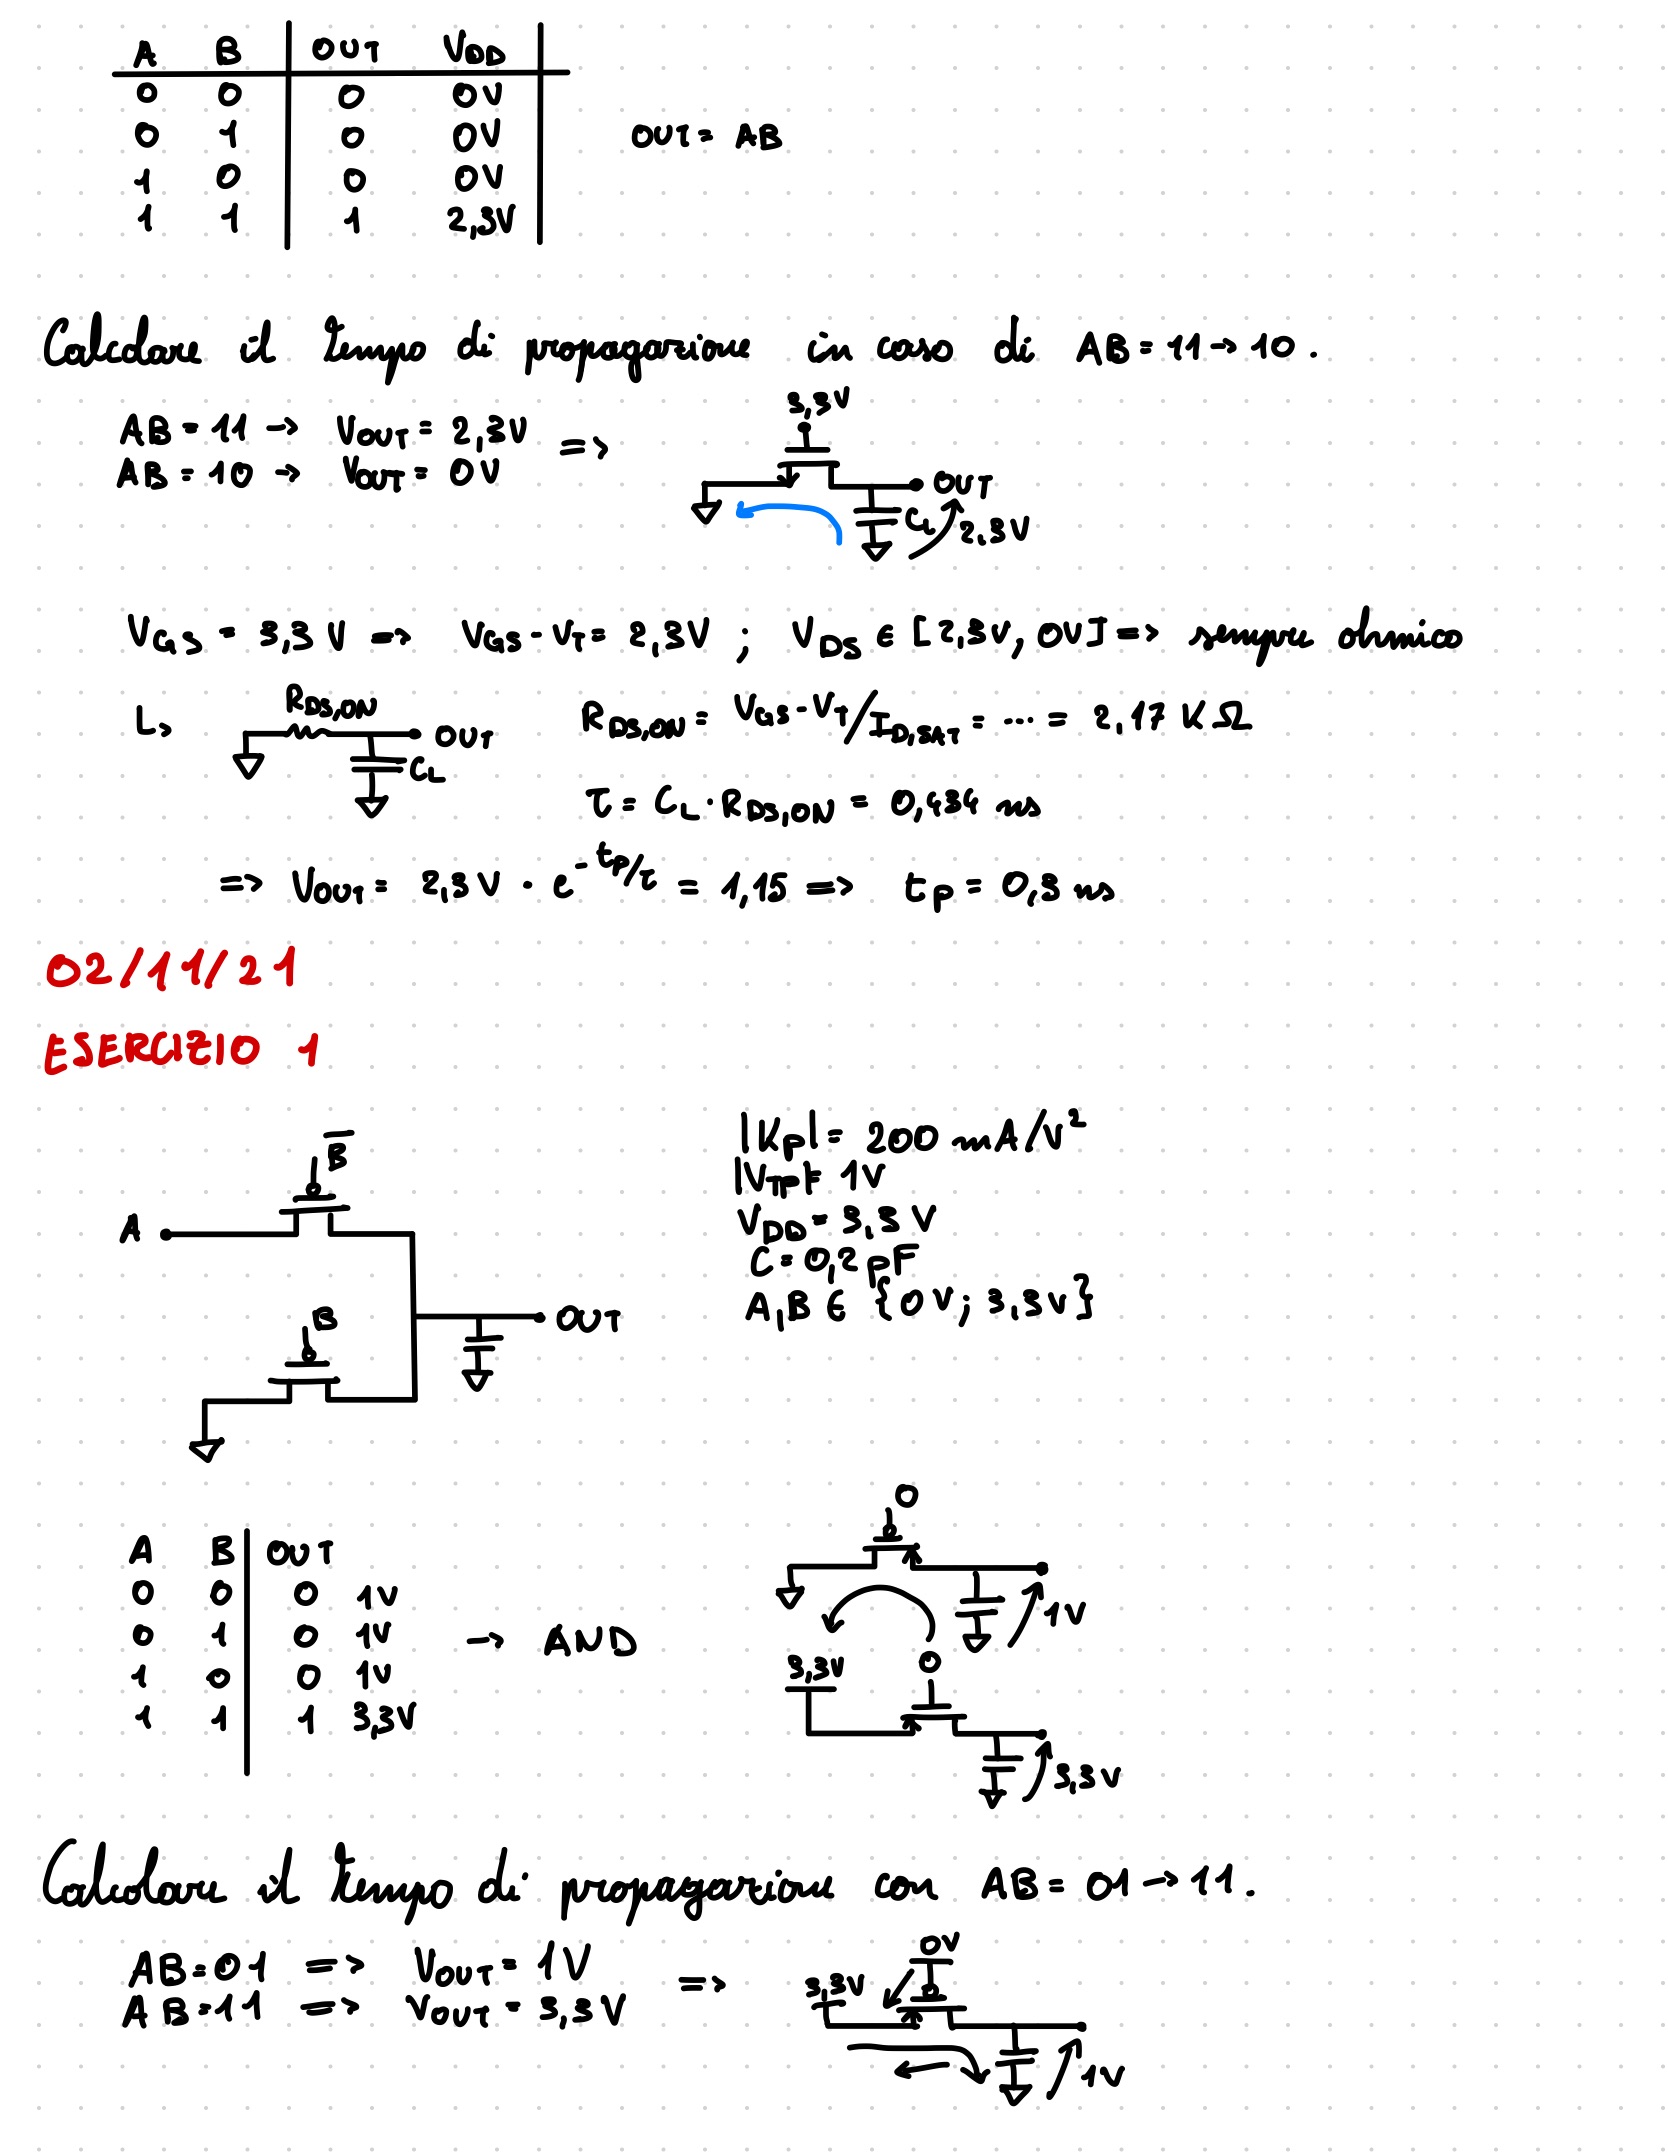 A B OUT VDD
0 0 0 0V
0 1 0 0V
OUT = AB
1 0 0 0V
1 1 1 2,3V
Calcolare il tempo di propagazione in caso di AB = 11 → 10.
AB = 11 → VOUT = 2,3V
AB = 10 → VOUT = 0V
=>
3,3V
OUT
CL
2,3V
VGS = 3,3 V => VGS - VT = 2,3V ; VDS ∈ [2,3V, 0V] => sempre ohmico
L>
RDS,ON
OUT
CL
RDS,ON = VGS - VT / ID,SAT = ... = 2,17 KΩ
τ = CL · RDS,ON = 0,434 ns
=> VOUT = 2,3V · e^-tp/τ = 1,15 => tp = 0,3 ns
02/11/21
ESERCIZIO 1
B̅
A
B
OUT
|Kp| = 200 mA/V²
|VTp| = 1V
VDD = 3,3 V
C = 0,2 pF
A,B ∈ {0V; 3,3V}
A B OUT
0 0 0 1V
0 1 0 1V
1 0 0 1V
1 1 1 3,3V
→ AND
0
1V
3,3V
0
3,3V
Calcolare il tempo di propagazione con AB = 01 → 11.
AB = 01 => VOUT = 1V
AB = 11 => VOUT = 3,3V
=>
0V
3,3V
1V